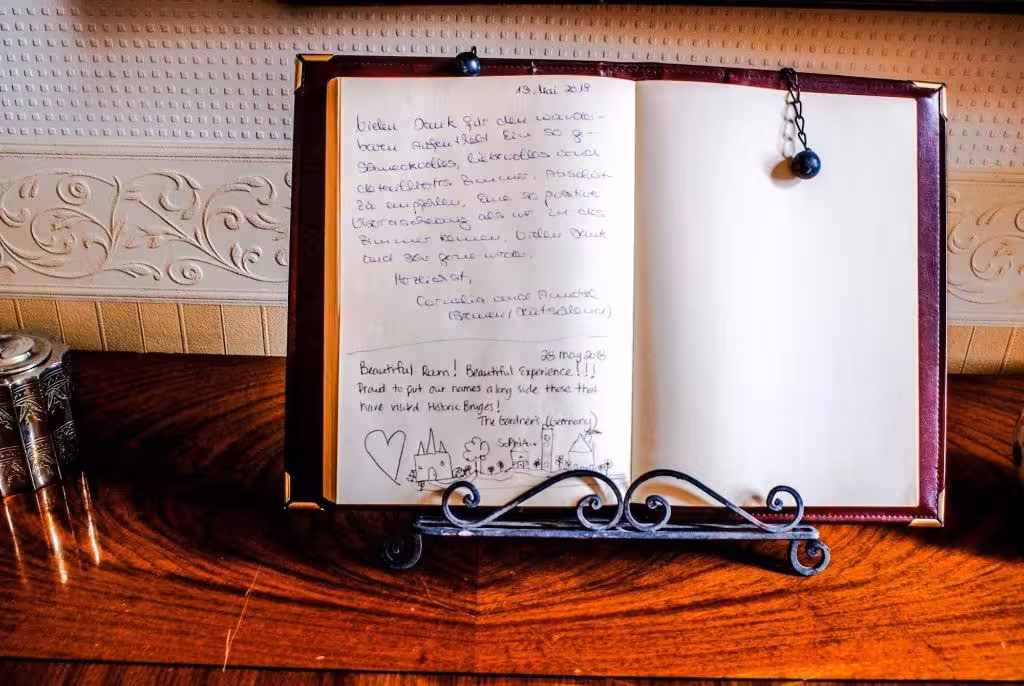 19. Mai 2018
Vielen Dank für den wunder-
baren Aufenthalt. Ein so ge-
schmackvolles, liebevolles und
detailliertes Zimmer. Absolut
zu empfehlen. Eine so positive
Überraschung als wir in das
Zimmer kamen. Vielen Dank
und sehr gerne wieder.
Herzlichst,
Cornelia und
(Bremen/Deutschland)
28 may 2018
Beautiful Room! Beautiful Experience!!!
Proud to put our names along side those that
have visited Historic Bruges!
The Gardner's (Germany)
Sophia